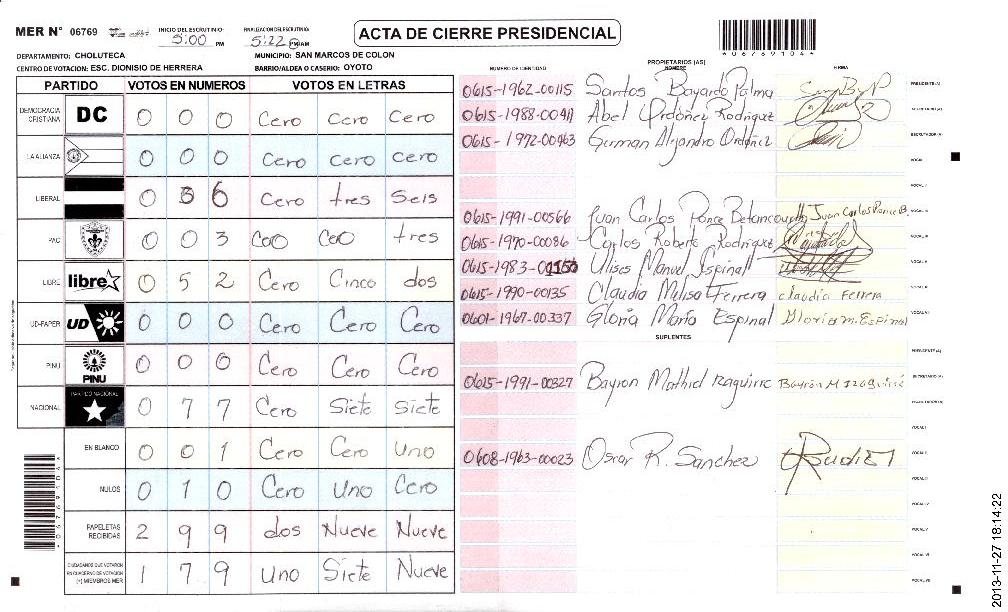 MER Nº 06769
INICIO DEL ESCRUTINIO: 5:00 PM
FINALIZACION DEL ESCRUTINIO: 5:22 PM/AM
ACTA DE CIERRE PRESIDENCIAL
*06769104*
DEPARTAMENTO: CHOLUTECA
MUNICIPIO: SAN MARCOS DE COLON
CENTRO DE VOTACION: ESC. DIONISIO DE HERRERA
BARRIO/ALDEA O CASERIO: OYOTO
PARTIDO VOTOS EN NUMEROS VOTOS EN LETRAS
DEMOCRACIA CRISTIANA DC 0 0 0 Cero Cero Cero
LA ALIANZA 0 0 0 Cero cero cero
LIBERAL 0 3 6 Cero tres Seis
PAC 0 0 3 Cero Cero tres
LIBRE libre 0 5 2 Cero Cinco dos
UD-FAPER UD 0 0 0 Cero Cero Cero
PINU PINU 0 0 0 Cero Cero Cero
NACIONAL PARTIDO NACIONAL 0 7 7 Cero Siete Siete
EN BLANCO 0 0 1 Cero Cero Uno
NULOS 0 1 0 Cero Uno Cero
PAPELETAS RECIBIDAS 2 9 9 dos Nueve Nueve
CIUDADANOS QUE VOTARON EN CUADERNO DE VOTACION (+) MIEMBROS MER 1 7 9 uno Siete Nueve
NUMERO DE IDENTIDAD PROPIETARIOS (AS) NOMBRE FIRMA
0615-1962-00115 Santos Bayardo Palma PRESIDENTE (A)
0615-1988-00411 Abel Ordoñez Rodriguez SECRETARIO (A)
0615-1972-00463 German Aljandro Ordoñez ESCRUTADOR (A)
VOCAL I
VOCAL II
0615-1991-00566 Juan Carlos Ponce Betancourth Juan Carlos Ponce B. VOCAL III
0615-1970-00086 Carlos Roberto Rodriguez VOCAL IV
0615-1983-0 Ulises Manuel Espinal VOCAL V
0615-1990-00135 Claudia Melisa Ferrera claudia Ferrera VOCAL VI
0601-1967-00337 Gloria Maria Espinal Gloria M. Espinal VOCAL VII
SUPLENTES
PRESIDENTE (A)
0615-1991-00327 Bayron Mathiel Izaguirre Bayron M Izaguirre SECRETARIO (A)
ESCRUTADOR (A)
VOCAL I
0608-1963-00023 Oscar R. Sanchez VOCAL II
VOCAL III
VOCAL IV
VOCAL V
VOCAL VI
VOCAL VII
2013-11-27 18:14:22